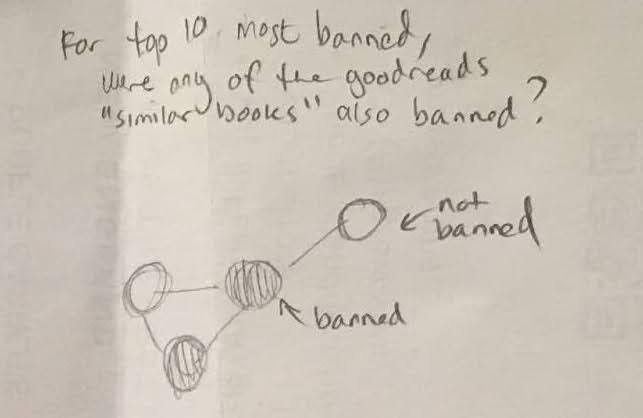 For top 10 most banned,
were any of the goodreads
"similar books" also banned?
not
banned
banned